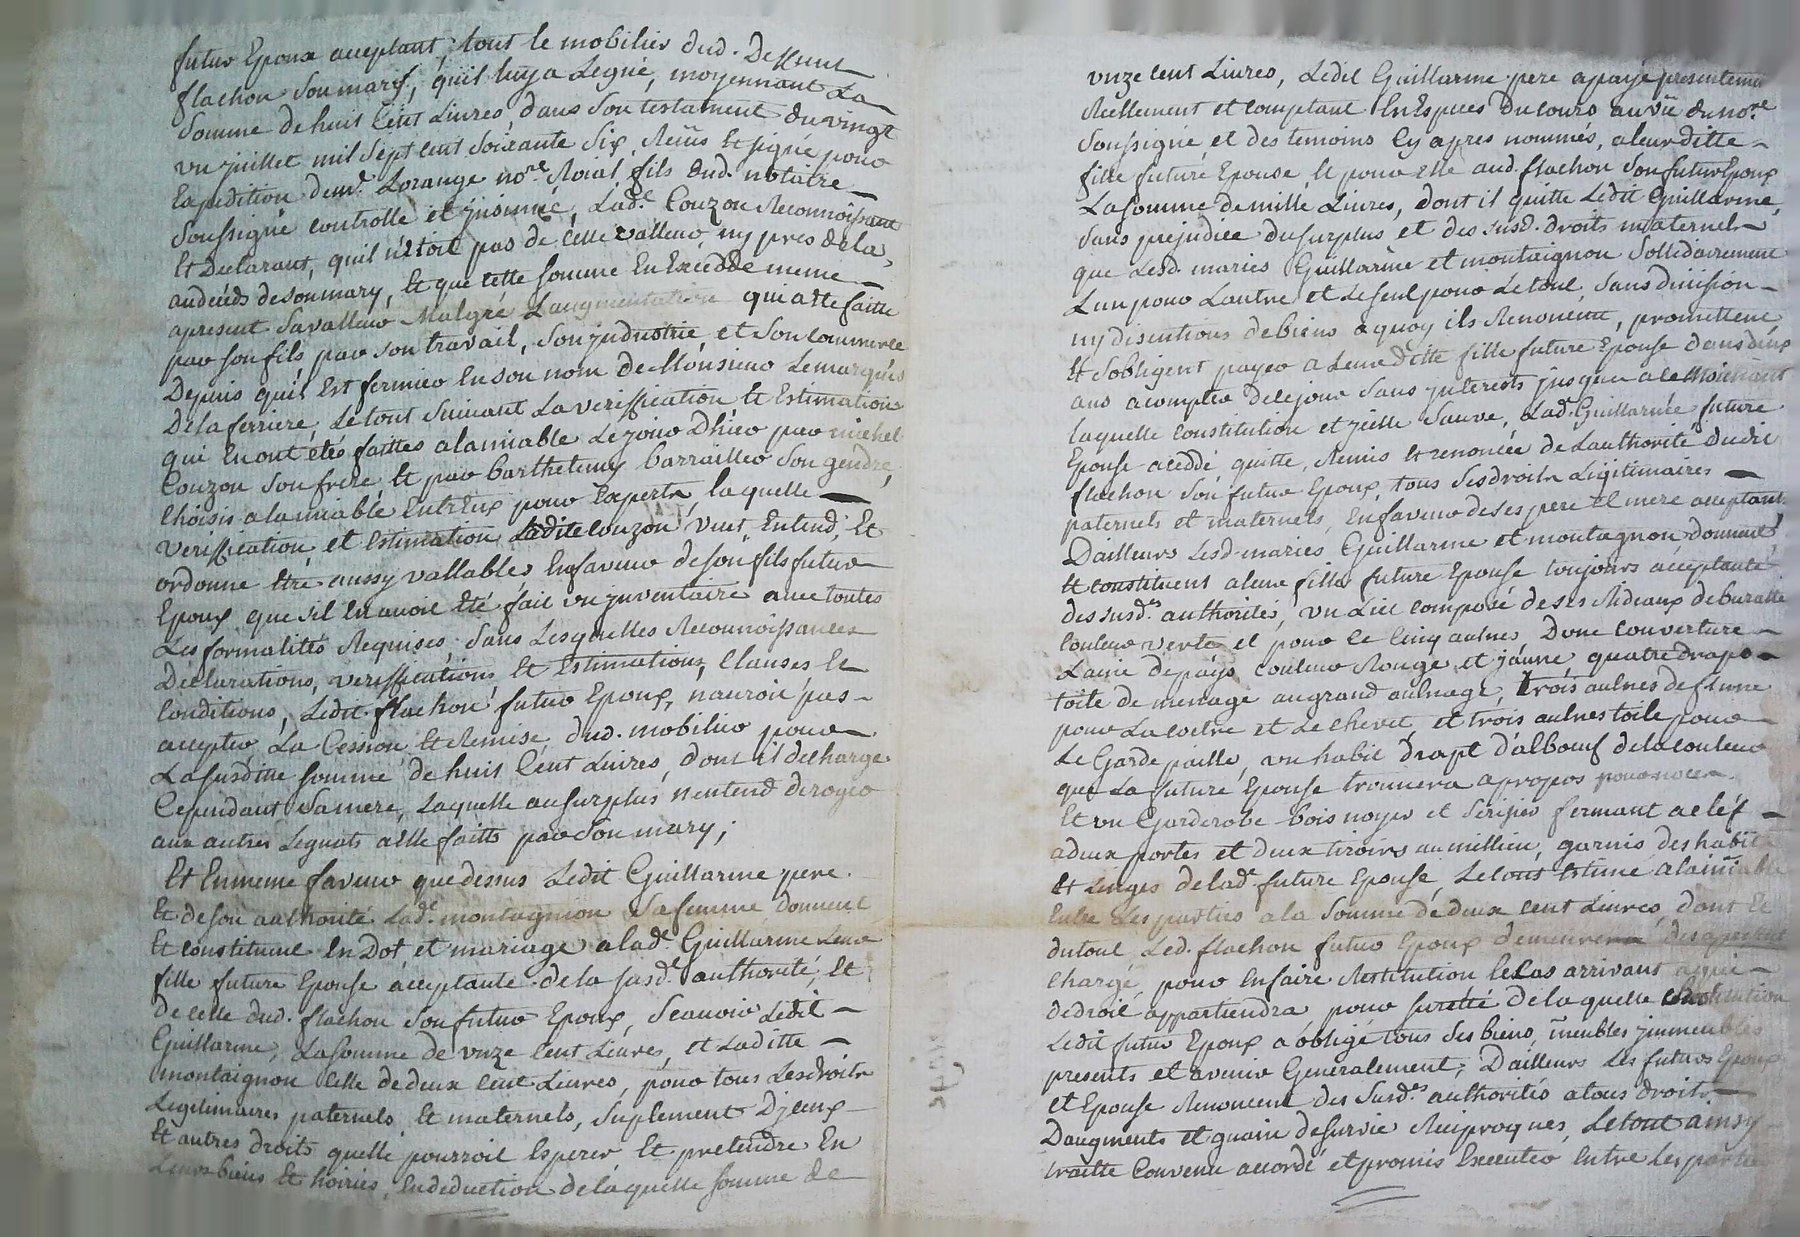 futur Epoux acceptant, tout le mobilier dud. Deffunt
flachon son mary, qu'il luy a Legué, moyennant La
Somme de huit Cent Livres, dans Son testament du vingt
un juillet mil Sept cent Soixante Six, Reçus et signé pour
Expedition dem.e Lorange no.re Roial fils dud. notaire
Soussigné controllé et jnsinué, Lad.e Couzon Reconnoissant
Et Declarant, quil n'étoit pas de Cette valleur, ny pres de la,
audeceds de son mary, Et que cette Somme En Excedde meme
apresent Savalleur Malgré Laugmentation qui a été faitte
par son fils par son travail, Son jndustrie, et Son Commerce
Depuis quil Est fermier En son nom de Monsieur Le marquis
De la ferriere, Le tout Suivant La veriffication et Estimation
qui En ont étés faittes a lamiable Le jour D'hier par michel
Couzon son frere, et par barthelemy barrailler Son gendre,
Choisis a lamiable Entr'Eux pour Experts, laquelle
veriffication, et estimation Ladite Couzon, veut, Entend, Et
ordonne Etre aussy vallables En faveur de son fils futur
Epoux que s'il En avoit Eté fait un jnventaire avec toutes
Les formalités Requises, Sans Lesquelles Reconnoissances
Déclarations, veriffications, Et Estimations, Clauses Et
Conditions, Ledit flachon futur Epoux, n'auroit pas
accepter La Cession Et Remise dud. mobilier pour
La susditte Somme de huit Cent Livres, dont il décharge
Cependant Samere, Laquelle au surplus n'entend Deroger
aux autres Leguats a Elle faitts par Son mary;
Et En meme faveur que dessus Ledit Guillarme pere.
Et de son authorité Lad.e montagnion Sa femme, Donnent
Et Constituent En Dot, et mariage a lad.e Guillarme Leur
fille future Epouse acceptante de la susd.e authorité, Et
De celle dud. flachon Son futur Epoux, Scauoir Ledit
Guillarme, La Somme de vnze Cent Livres, et Laditte
montaignon Celle de deux Cent Livres, pour tous Les droits
Legitimaires paternels Et maternels, Suplement D'jceux
Et autres droits quelle pourroit Esperer, Et pretendre En
Leurs biens Et hoiries, En deduction de laquelle Somme de
vnze Cent Livres, Ledit Guillarme pere a payé presentement
Réellement et Comptant En Especes Du Cours au vû du no.re
Soussigné, et des temoins Cy apres nommés, a leur ditte
fille future Epouse Et pour Elle aud. flachon Son futur Epoux
La Somme de mille Livres, Dont il quitte Ledit Guillarme,
Sans prejudice Du surplus et des susd. droits maternels
que Lesd. mariés Guillarme et montaignon Sollidairement
L'un pour L'autre et Le Seul pour Le tout, Sans division
ny discutions de biens a quoy ils Renoncent, promettent
Et S'obligent payer a Leur ditte fille future Epouse Dans deux
ans a compter de ce jour Sans jnterests jusqu'a Ce Moïennant
laquelle Constitution et jcelle Sauve, Lad. Guillarme future
Epouse a ceddé, quitte, Remis et renoncée de Lauthorité dudit
flachon Son futur Epoux, tous Ses droits Legitimaires
paternels et maternels, En faveur de ses pere Et mere acceptant,
D'ailleurs Lesd. mariés Guillarme et montagnon donnent
Et constituent a leur fille future Epouse toujours acceptante
des susd.es authorités, vn Lit Composé de ses Rideaux de buratte
Couleur verte et pour ce Cinq aulnes, D'une Couverture
Laine de pays Couleur Rouge et jaune, quatre draps
toile de menage au grand aulnage, trois aulnes de
pour La Coetre et Le Chevet, et trois aulnes toile pour
Le Garde paille, vn habit drapt d'alboeuf de la Couleur
que La future Epouse trouvera a propos pour noces
Et vn Garderobe bois noyer et Serisier fermant a Cléf
a deux portes et deux tiroirs au millieu, garnis des habits
Et Linges de lad.e future Epouse, Le tout Estimé a lamiable
Entre Les parties a la Somme de deux Cent Livres, dont Et
du tout Led. flachon futur Epoux demeurera des apresent
Chargé, pour En faire Restitution le Cas arrivant a qui
de droit appartiendra pour suretté de laquelle Restitution
Ledit futur Epoux a obligé tous Ses biens, meubles jmmeubles
presents et avenir Generalement; D'ailleurs Les futurs Epoux
et Epouse Renoncent des Susd.es authorités a tous droits
Daugments et guain de survie Reciproques, Le tout ainsy
traitté Convenu accordé et promis Executer Entre Les parties